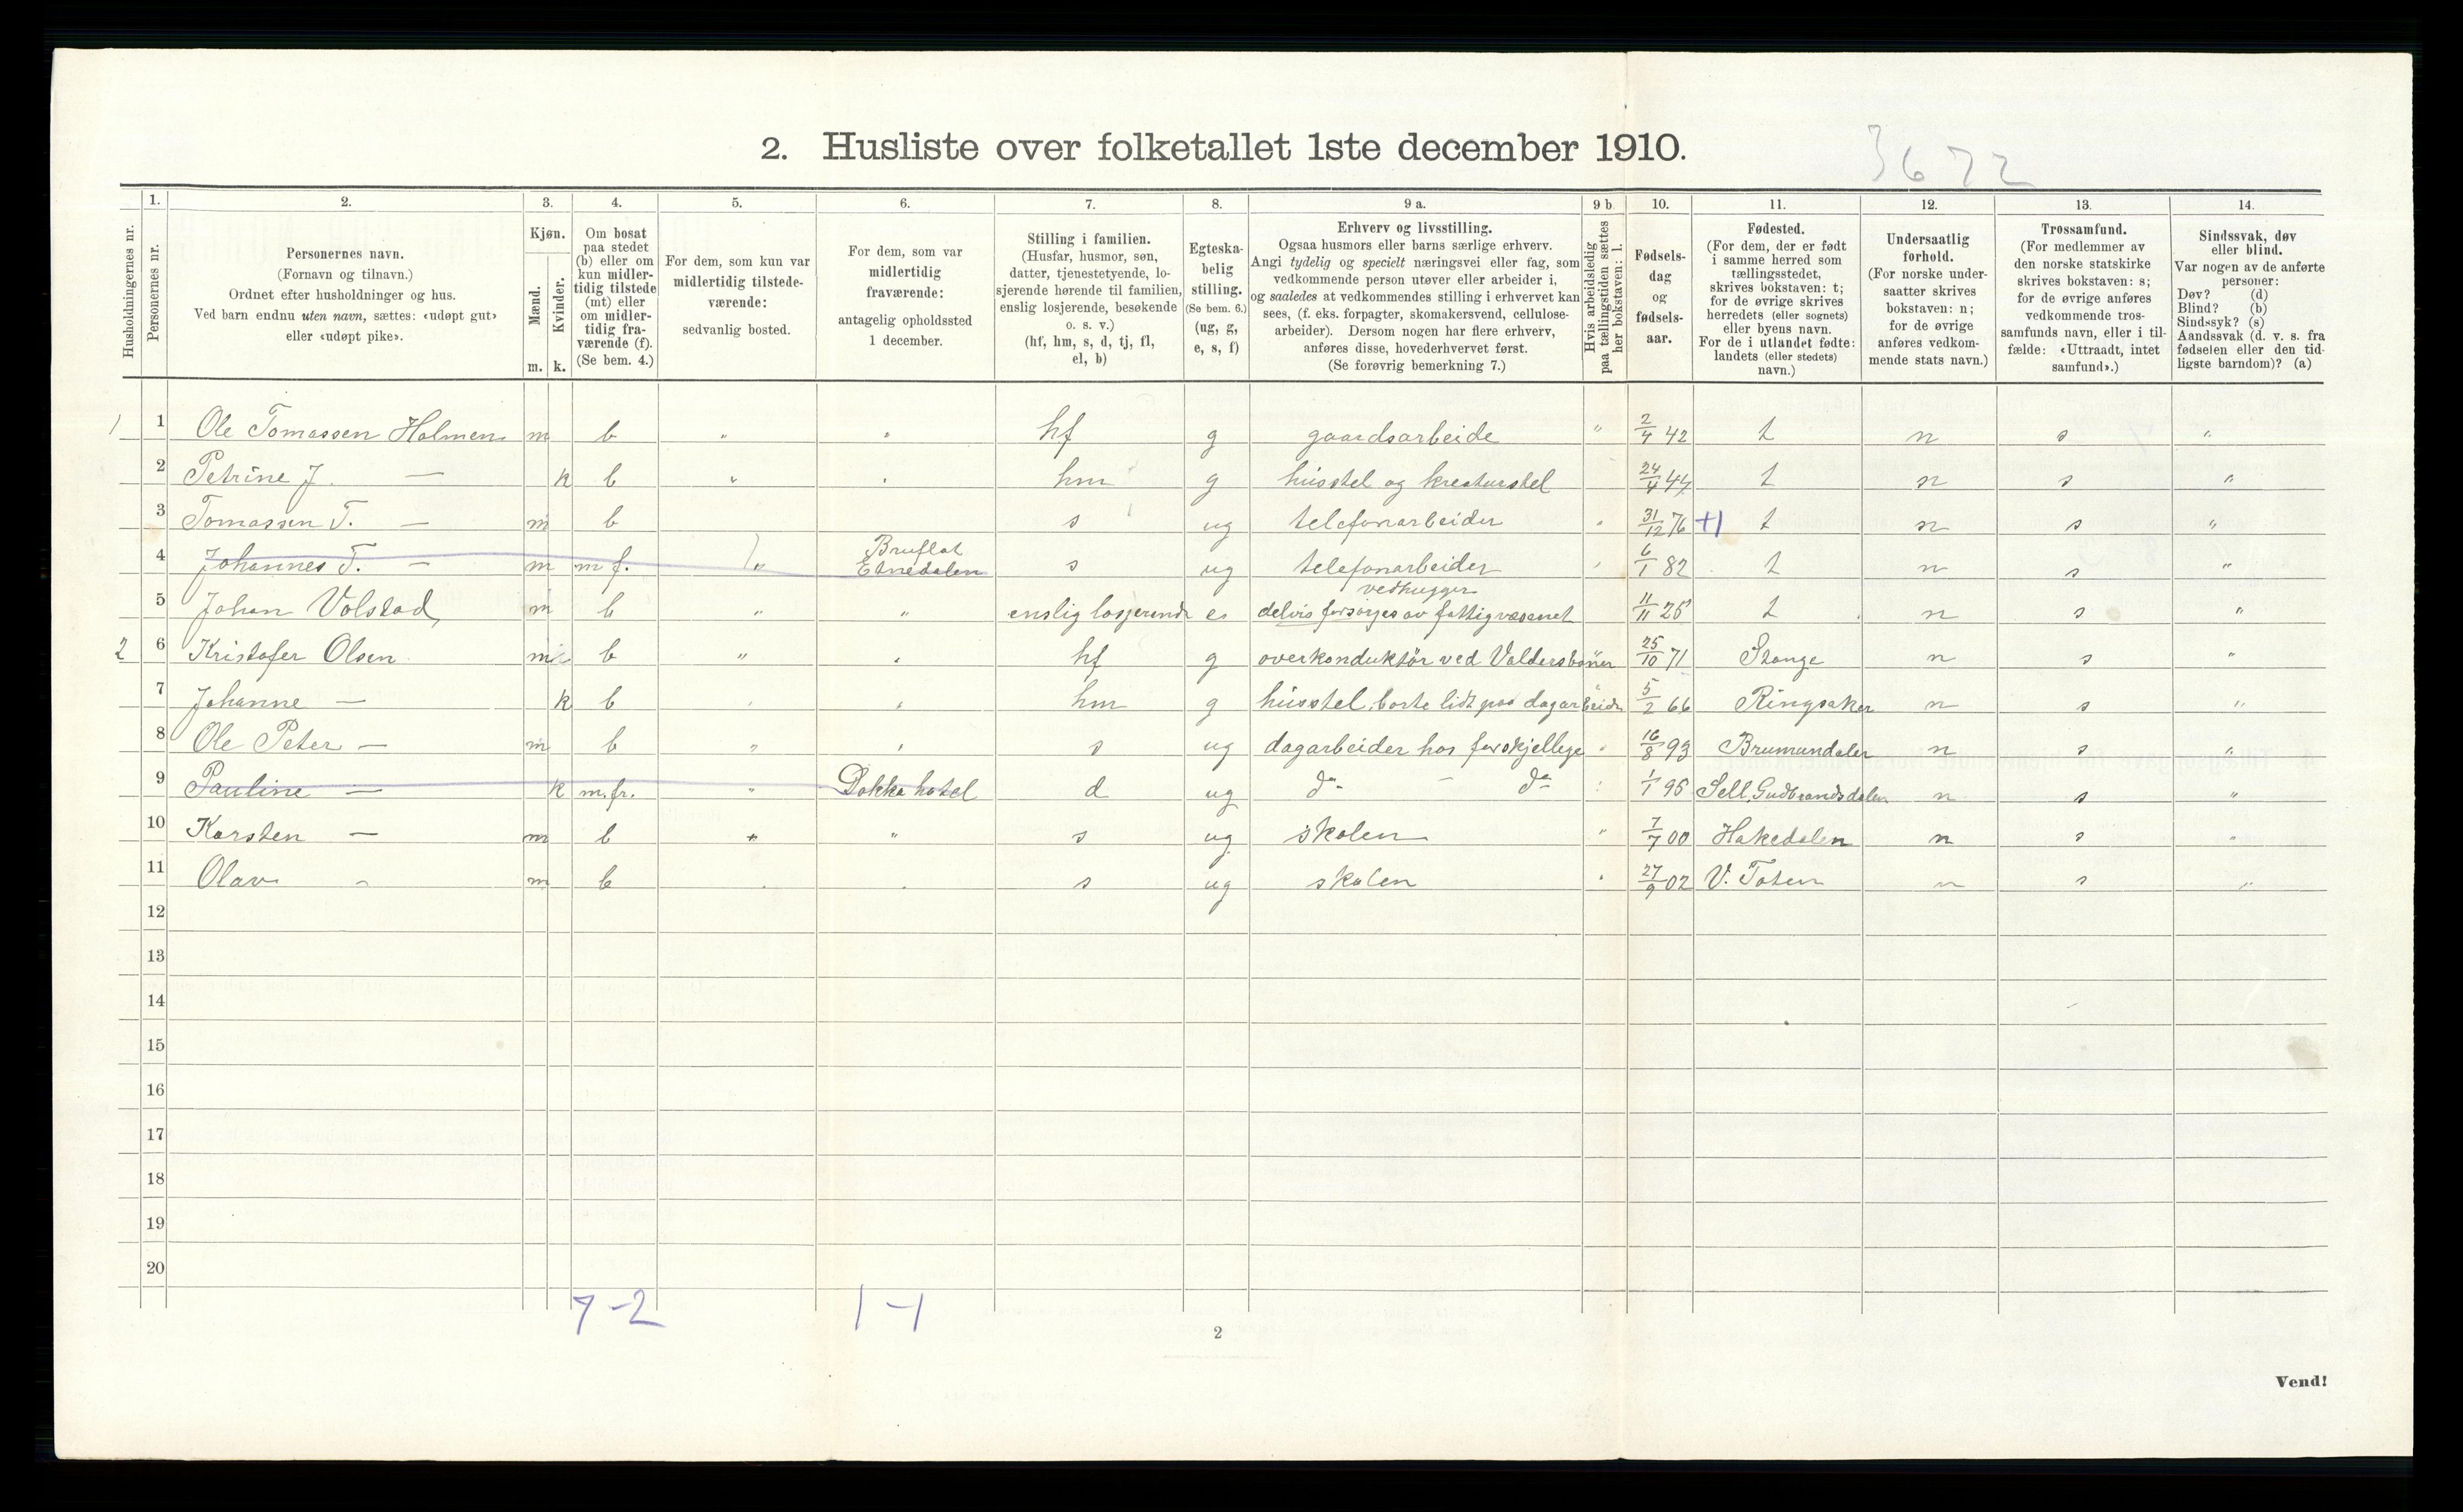 2. Husliste over folketallet 1ste december 1910.
3672
1. 2. 3. 4. 5. 6. 7. 8. 9 a. 9 b. 10. 11. 12. 13. 14.
Husholdningernes nr.
Personernes nr.
Personernes navn.
(Fornavn og tilnavn.)
Ordnet efter husholdninger og hus.
Ved barn endnu uten navn, sættes: «udøpt gut»
eller «udøpt pike».
Kjøn.
Mænd.
Kvinder.
m. k.
Om bosat
paa stedet
(b) eller om
kun midler-
tidig tilstede
(mt) eller
om midler-
tidig fra-
værende (f).
(Se bem. 4.)
For dem, som kun var
midlertidig tilstede-
værende:
sedvanlig bosted.
For dem, som var
midlertidig
fraværende:
antagelig opholdssted
1 december.
Stilling i familien.
(Husfar, husmor, søn,
datter, tjenestetyende, lo-
sjerende hørende til familien,
enslig losjerende, besøkende
o. s. v.)
(hf, hm, s, d, tj, fl,
el, b)
Egteska-
belig
stilling.
(Se bem. 6.)
(ug, g,
e, s, f)
Erhverv og livsstilling.
Ogsaa husmors eller barns særlige erhverv.
Angi tydelig og specielt næringsvei eller fag, som
vedkommende person utøver eller arbeider i,
og saaledes at vedkommendes stilling i erhvervet kan
sees, (f. eks. forpagter, skomakersvend, cellulose-
arbeider). Dersom nogen har flere erhverv,
anføres disse, hovederhvervet først.
(Se forøvrig bemerkning 7.)
Hvis arbeidsledig
paa tællingstiden sættes
her bokstaven: l.
Fødsels-
dag
og
fødsels-
aar.
Fødested.
(For dem, der er født
i samme herred som
tællingsstedet,
skrives bokstaven: t;
for de øvrige skrives
herredets (eller sognets)
eller byens navn.
For de i utlandet fødte:
landets (eller stedets)
navn.)
Undersaatlig
forhold.
(For norske under-
saatter skrives
bokstaven: n;
for de øvrige
anføres vedkom-
mende stats navn.)
Trossamfund.
(For medlemmer av
den norske statskirke
skrives bokstaven: s;
for de øvrige anføres
vedkommende tros-
samfunds navn, eller i til-
fælde: «Uttraadt, intet
samfund».)
Sindssvak, døv
eller blind.
Var nogen av de anførte
personer:
Døv? (d)
Blind? (b)
Sindssyk? (s)
Aandssvak (d. v. s. fra
fødselen eller den tid-
ligste barndom)? (a)
1 1 Ole Tomassen Holmen m b " " hf g gaardsarbeide " 2/4 42 t n s "
2 Petrine J. — k b " " hm g husstel og kreaturstel 24/4 44 t n s "
3 Tomassen T. — m b s ug telefonarbeider " 31/12 76 +1 t n s "
4 Johannes T. — m m f. " Bruflat
Etnedalen s ug telefonarbeider " 6/1 82 t n s "
5 Johan Volstad m b " " enslig losjerende e vedhugger
delvis forsørges av fattigvæsenet 11/11 25 t n s "
2 6 Kristofer Olsen m b " " hf g overkonduktör ved Valdersbanen 25/10 71 Stange n s "
7 Johanne — k b " " hm g husstel, borte lidt paa dagarbeide 5/2 66 Ringsaker n s "
8 Ole Peter — m b " " s ug dagarbeider hos forskjellige " 16/8 93 Brumundalen n s "
9 Pauline — k m. fr. " Dokka hotel d ug do — do " 1/1 95 Sell, Gudbrandsdalen n s "
10 Karsten — m b " " s ug skolen " 7/7 00 Hakedalen n s "
11 Olav — m b " " s ug skolen " 27/9 02 V. Toten n s "
12
13
14
15
16
17
18
19
20
7-2 1-1
2
Vend!